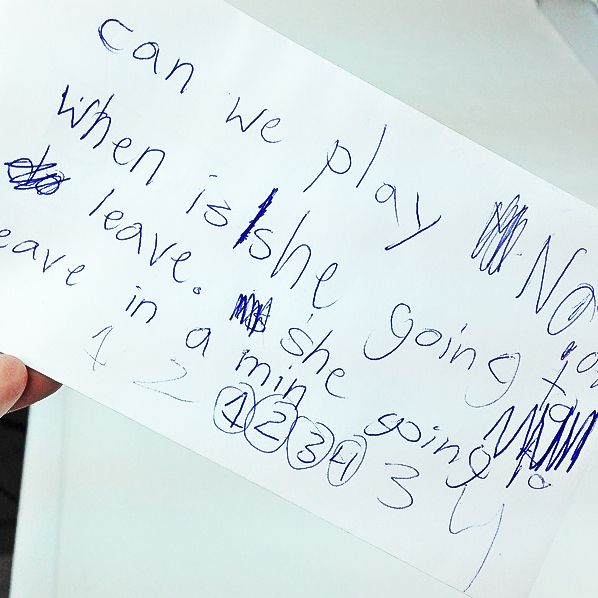 can we play No
When is she going to
leave. she going to
eave in a min
1 2 1 2 3 4 3 4